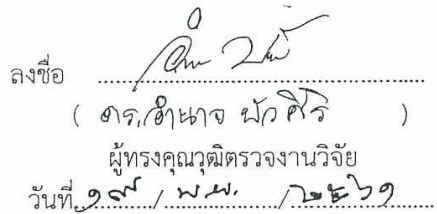 ลงชื่อ
( ดร.อำนาจ บัวศิริ )
ผู้ทรงคุณวุฒิตรวจงานวิจัย
วันที่ ๑๗ / พ.ย. / ๒๕๖๑